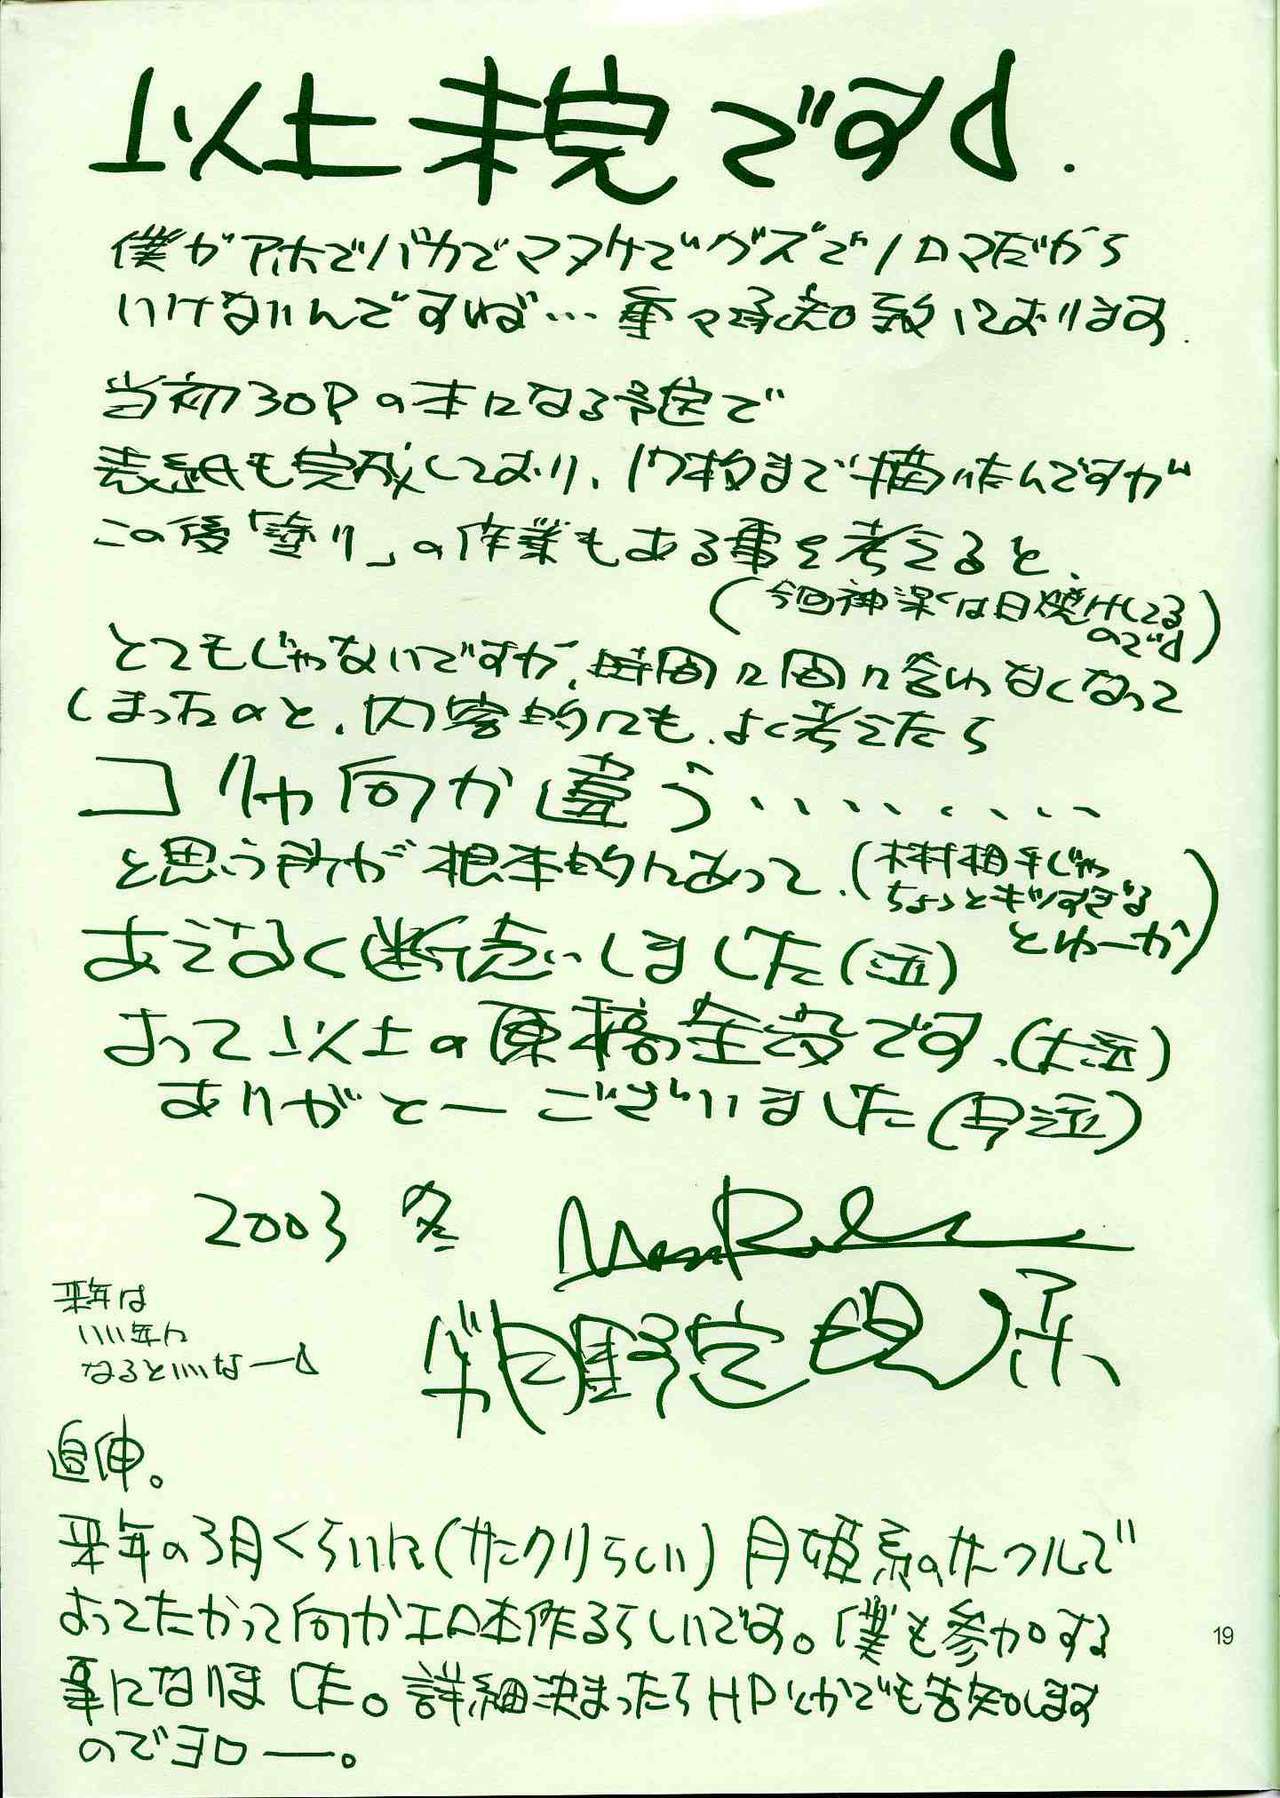 以上未完です♪.
僕がアホでバカでマヌケでグズでノロマだから
いけないんですねば…重々承知致しております.
当初30Pの本になる予定で
表紙も完成しており、17枚まで描いたんですが
この後「塗り」の作業もある事を考えると、
(今回神楽は日焼けしてる
のです)
とてもじゃないですが、時間に間に合わなくなって
しまったのと、内容的にも、よく考えたら
コリャ何か違う・・・・・・・・
と思う所が根本的にあって、
(木村相手じゃ
ちょっとキツすぎる
とゆーか)
あえなく断念しました(泣)
よって以上の原稿全没です、(大泣)
ありがとーございました(号泣)
2003 冬
来年は
いい年に
なるといいなー♪
追伸。
来年の3月くらいに(サンクリらしい)月姫系のサークルで
よってたかって何かエロ本作るらしいです。僕も参加する
事になりました。詳細決まったらHPとかでも告知します
のでヨロー。
19